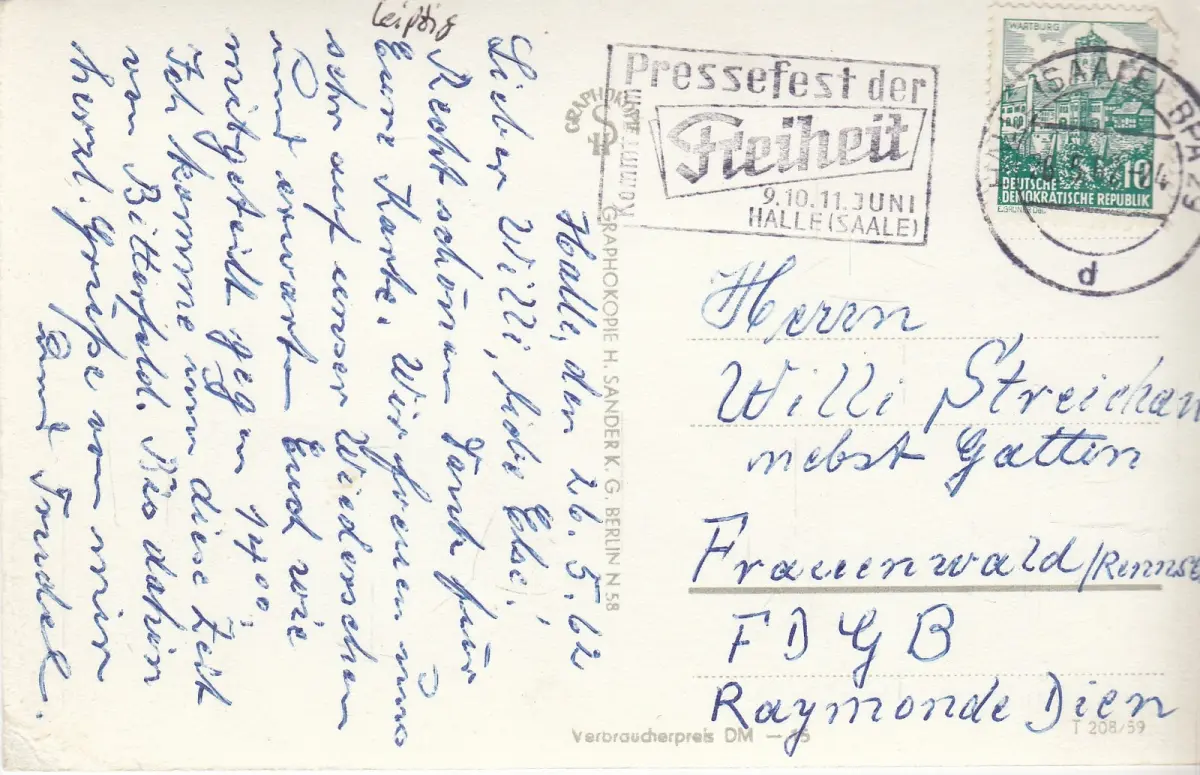 Leipzig
Halle, den 26.5.62
Lieber Willi, liebe Else!
Recht schönen Dank für
Eure Karte. Wir freuen uns
sehr auf unser Wiedersehen
und erwarten Euch wie
mitgeteilt gegen 1400.
Ich komme um diese Zeit
von Bitterfeld. Bis dahin
herzl. Grüße von
Trudel.
GRAPHOKOPIE
GRAPHOKOPIE H. SANDER K. G. BERLIN N 58
Pressefest der
Freiheit
9.10.11. JUNI
HALLE (SAALE)
WARTBURG
10
DEUTSCHE
DEMOKRATISCHE REPUBLIK
(SAALE)
d
Herrn
Willi
nebst Gatten
Frauenwald
FDGB
Raymonde Dien
Verbraucherpreis DM
T 208/59